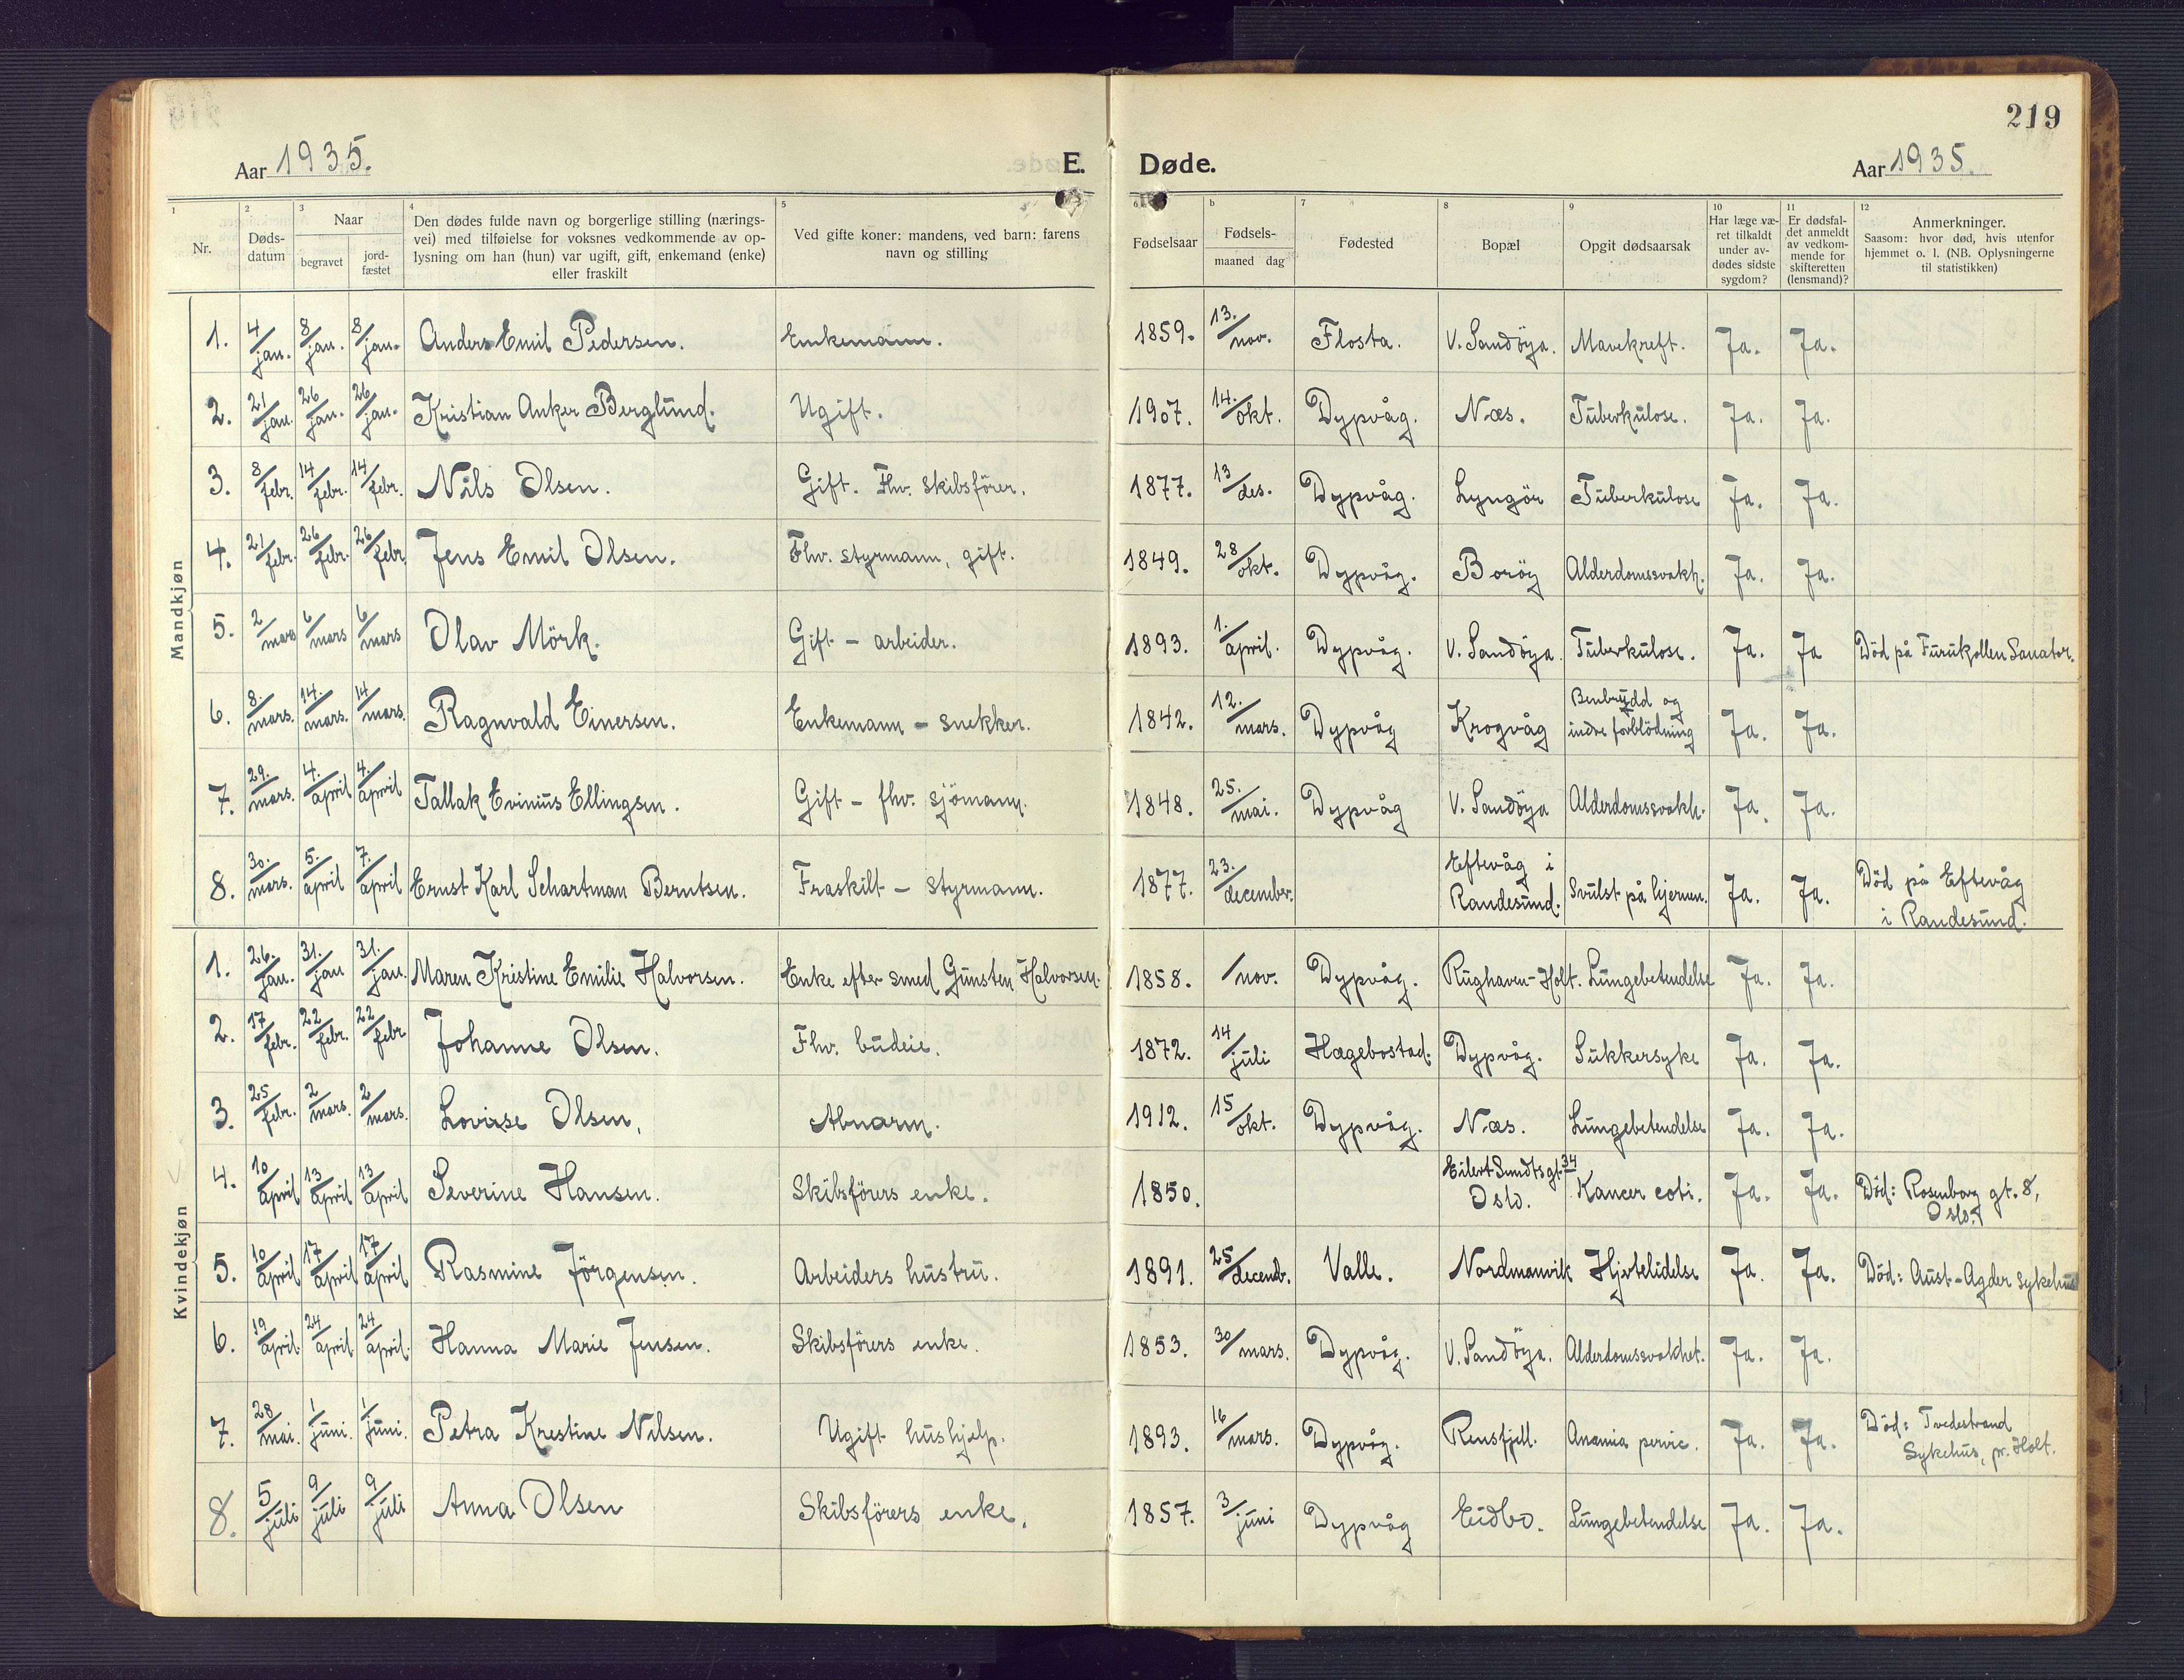 219
Aar 1935.
E. Døde.
Aar 1935.
1 2 3 4 5 6 b 7 8 9 10 11 12
Nr.
Døds-
datum
Naar
begravet
jord-
fæstet
Den dødes fulde navn og borgerlige stilling (nærings-
vei) med tilføielse for voksnes vedkommende av op-
lysning om han (hun) var ugift, gift, enkemand (enke)
eller fraskilt
Ved gifte koner: mandens, ved barn: farens
navn og stilling
Fødselsaar
Fødsels-
maaned dag
Fødested
Bopæl
Opgit dødsaarsak
Har læge væ-
ret tilkaldt
under av-
dødes sidste
sygdom?
Er dødsfal-
det anmeldt
av vedkom-
mende for
skifteretten
(lensmand)?
Anmerkninger.
Saasom: hvor død, hvis utenfor
hjemmet o. l. (NB. Oplysningerne
til statistikken)
Mandkjøn
1. 4/jan. 8/jan. 8/jan. Anders Emil Pedersen. Enkemann. 1859. 13./nov. Flosta. V. Sandöya. Mavekreft. Ja. Ja.
2. 21/jan. 26/jan. 26/jan. Kristian Anker Berglund. Ugift. 1907. 14./okt. Dypvåg. Næs. Tuberkulose. Ja. Ja.
3. 8/febr. 14/febr. 14/febr. Nils Olsen. Gift. Fhv. skibsförer. 1877. 13/des. Dypvåg. Lyngör Tuberkulose Ja. Ja.
4. 21/febr. 26/febr. 26/febr Jens Emil Olsen. Fhv. styrmann, gift. 1849. 28/okt. Dypvåg. Boröy Alderdomssvakh. Ja. Ja.
5. 2/mars 6/mars 6/mars Olav Mörk. Gift – arbeider. 1893. 1./april. Dypvåg. V. Sandöya. Tuberkulose. Ja. Ja Död på Furukollen Sanator.
6. 8./mars. 14./mars. 14/mars. Ragnvald Einersen. Enkemann – snekker. 1842. 12./mars. Dypvåg Krogvåg Benbrudd og
indre forblödning Ja. Ja.
7. 29./mars. 4./april 4./april Tallak Evinius Ellingsen. Gift – fhv. sjömann. 1848. 25./mai. Dypvåg V. Sandöya Alderdomssvakh. Ja. Ja.
8. 30./mars. 5./april 7./april Ernst Karl Schartman Berntsen. Fraskilt – styrmann. 1877. 23./december. Eftevåg i
Randesund. Svulst på hjernen. Ja. Ja. Död på Eftevåg
i Randesund.
Kvindekjøn
1. 26./jan. 31./jan 31./jan. Maren Kristine Emilie Halvorsen. Enke efter smed Gunsten Halvorsen. 1858. /nov. Dypvåg. Rughaven-Holt. Lungebetendelse Ja. Ja.
2. 17/febr. 22/febr. 22/febr Johanne Olsen. Fhv. budeie. 1872. 14/juli Hægebostad. Dypvåg. Sukkersyke Ja. Ja.
3. 25/febr. 2/mars. 2/mars. Lovise Olsen, Almarm. 1912. 15/okt. Dypvåg. Næs. Lungebetendelse Ja. Ja.
4. 10/april 13/april 13/april Severine Hansen. Skibsförers enke. 1850. Eilert Sundtsgt. 34
Oslo. Kancer coti. Ja. Ja. Död: Rosenborg gt. 8,
Oslo.
5. 10/april 17/april 17/april Rasmine Jörgensen. Arbeiders hustru. 1891. 25/decemb. Valle. Nordmanvik Hjertelidelse Ja. Ja. Död: Aust-Agder sykehus
6. 19/april. 24/april. 24/april. Hanna Marie Jensen. Skibsförers enke. 1853. 30/mars. Dypvåg. V. Sandöya. Alderdomssvakhet. Ja. Ja.
7. 28/mai. 1/juni. 1/juni. Petra Krestine Nilsen. Ugift hushjelp. 1893. 16/mars. Dypvåg. Rensfjell. Anæmia pernic. Ja. Ja. Död: Tvedestrand
Sykehus, pr. Holt.
8. 5/juli 9/juli 9/juli Anna Olsen Skibsförers enke. 1857. 3/juni Dypvåg Eidbo. Lungebetendelse Ja. Ja.